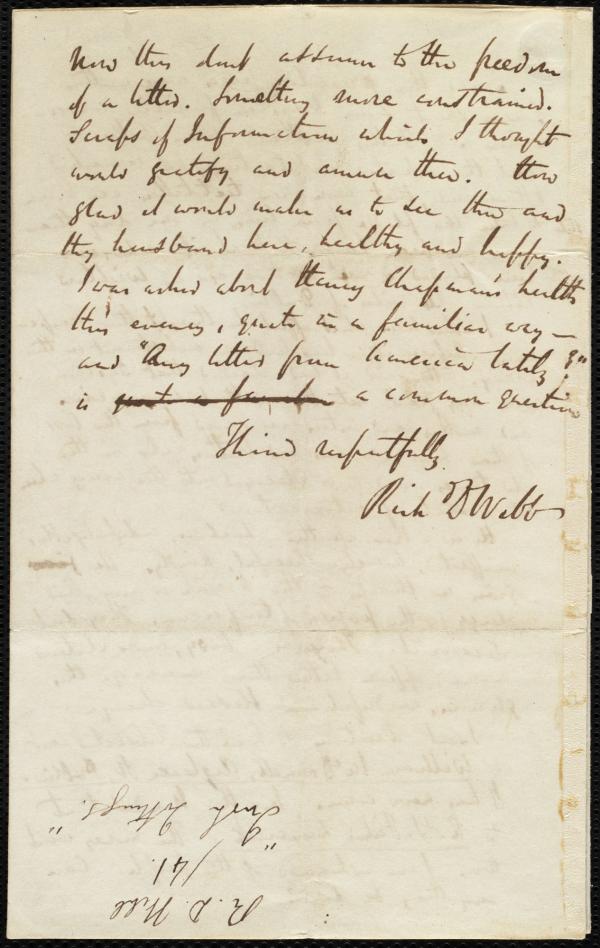 Now this dont assume to the freedom
of a letter. Something more constrained.
Scraps of Information which I thought
would gratify and amuse thee. How
glad it would make us to see thee and
thy husband here, healthy and happy.
I was asked about Henry Chapman's health
this evening, quite in a familiar way —
and "Any letter from America lately?"
is quite a familiar a common question
Thine respectfully.
Rich D Webb
R. D. Webb
/41.
"Irish Jottings."